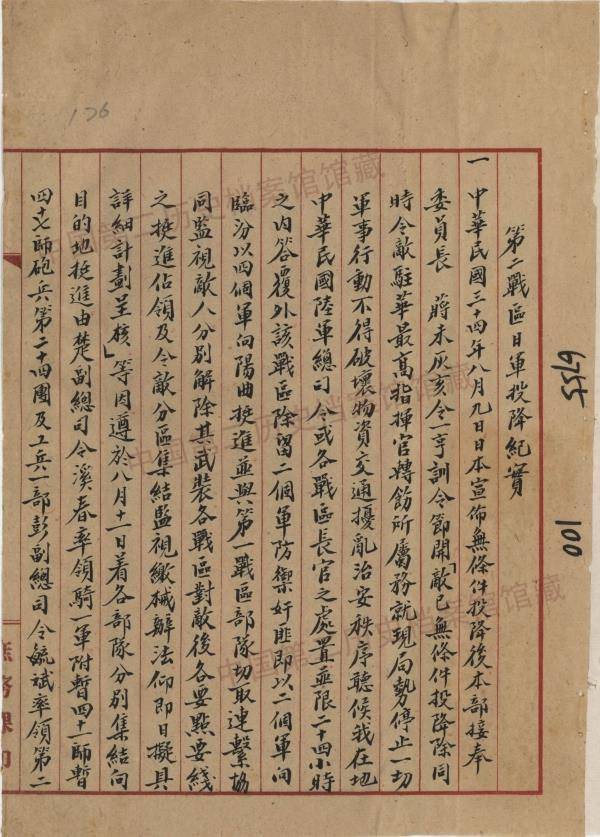 第二戰區日軍投降紀實
一 中華民國三十四年八月九日日本宣佈無條件投降後本部接奉
委員長 蔣未灰亥令一亨訓令節開「敵已無條件投降除同
時令敵駐華最高指揮官轉飭所屬務就現局勢停止一切
軍事行動不得破壞物資交通擾亂治安秩序聽候我在地
中華民國陸軍總司令或各戰區長官之處置並限二十四小時
之內答覆外該戰區除留二個軍防禦奸匪即以二個軍向
臨汾以四個軍向陽曲挺進並與第一戰區部隊切取連繫協
同監視敵人分別解除其武裝各戰區對敵後各要點要綫
之挺進佔領及令敵分區集結監視繳械辦法仰即日擬具
詳細計劃呈核」等因遵於八月十一日着各部隊分別集結向
目的地挺進由楚副總司令溪春率領騎一軍附暫四十一師暫
四十七師砲兵第二十四團及工兵一部彭副總司令毓斌率領第二
6755
001
176
中国第二历史档案馆馆藏
中国第二历史档案馆馆藏
中国第二历史档案馆馆藏